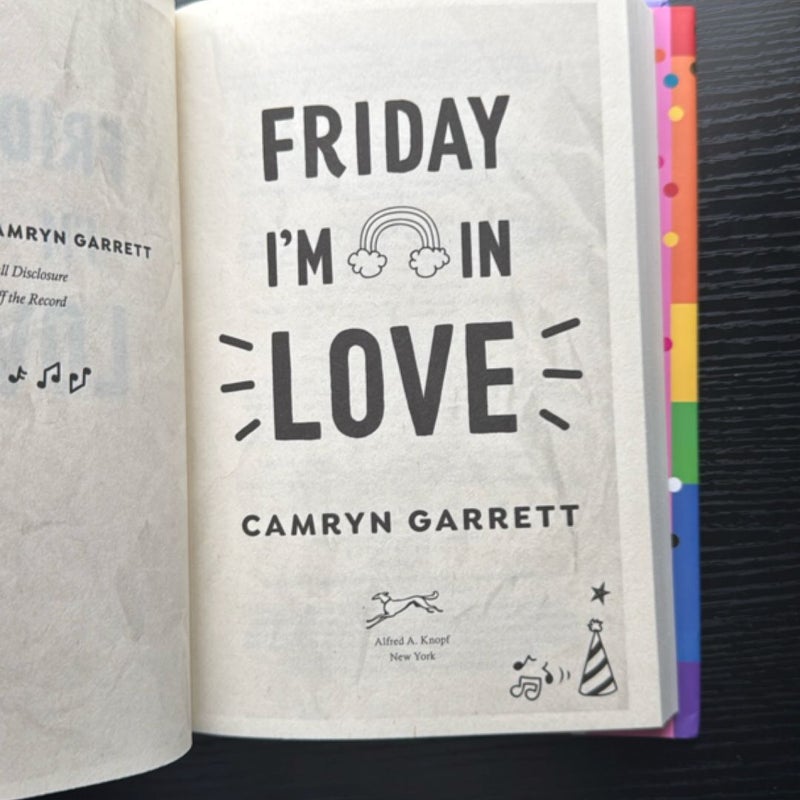 AMRYN GARRETT
ll Disclosure
ff the Record
FRIDAY
I'M IN
LOVE
CAMRYN GARRETT
Alfred A. Knopf
New York